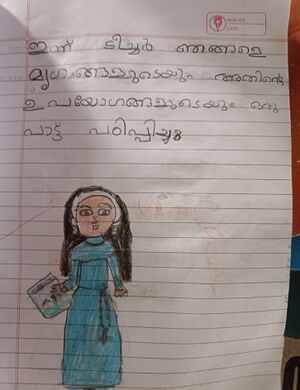 ഇന്ന് ടീച്ചർ ഞങ്ങളെ
മൃഗങ്ങളുടെയും അതിന്റെ
ഉപയോഗങ്ങളുടെയും ഒരു
പാട്ട് പഠിപ്പിച്ചു